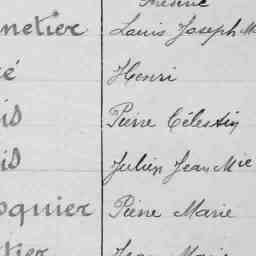 netier Louis Joseph M
é Henri
is Pierre Célestin
is Julien Jean Mie
oquier Pierre Marie
tier Jean Marie